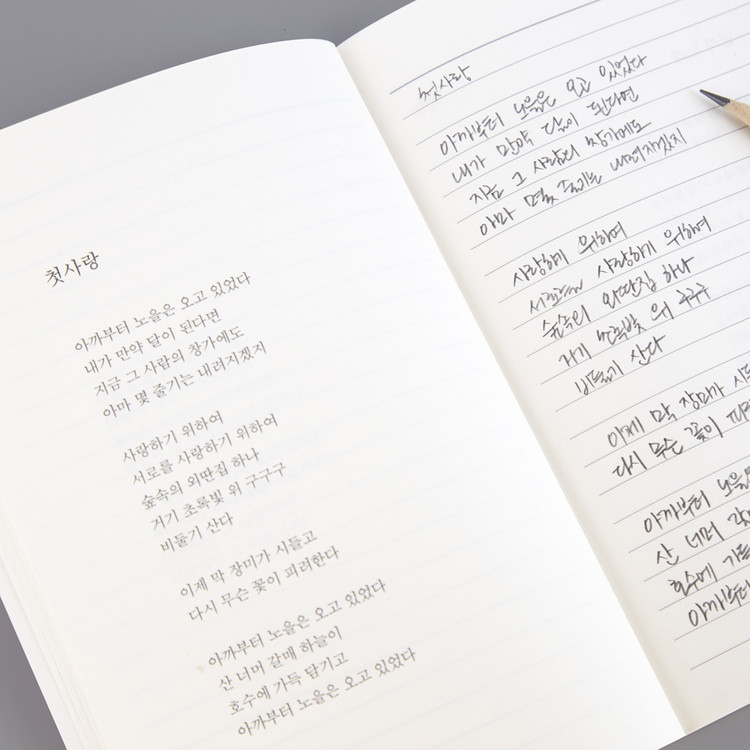 첫사랑
아까부터 노을은 오고 있었다
내가 만약 달이 된다면
지금 그 사람의 창가에도
아마 몇 줄기는 내려지겠지
사랑하기 위하여
서로를 사랑하기 위하여
숲속의 외딴집 하나
거기 초록빛 위 구구구
비둘기 산다
이제 막 장미가 시들고
다시 무슨 꽃이 피려한다
아까부터 노을은 오고 있었다
산 너머 갈매 하늘이
호수에 가득 담기고
아까부터 노을은 오고 있었다
첫사랑
아까부터 노을은 오고 있었다
내가 만약 달이 된다면
지금 그 사람의 창가에도
아마 몇 줄기는 내려지겠지
사랑하기 위하여
서로를 사랑하기 위하여
숲속의 외딴집 하나
거기 초록빛 위 구구구
비둘기 산다
이제 막 장미가 시들
다시 무슨 꽃이
아까부터 노을은
산 너머
호수에
아까부터